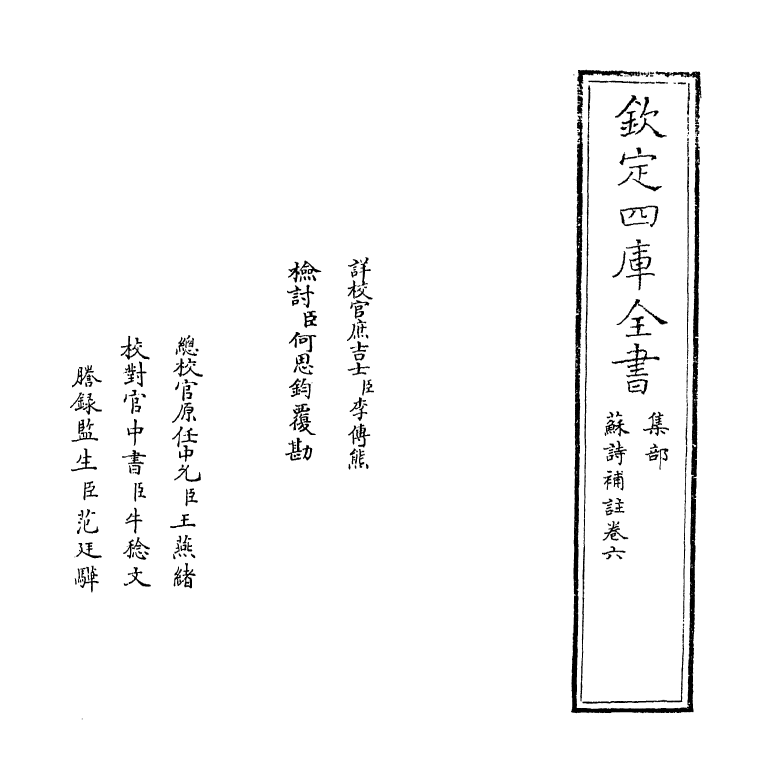 欽定四庫全書
集部
蘇詩補註卷六
詳校官庶吉士臣李傳熊
檢討臣何思鈞覆勘
總校官原任中允臣王燕緒
校對官中書臣牛稔文
謄録監生臣范廷騨